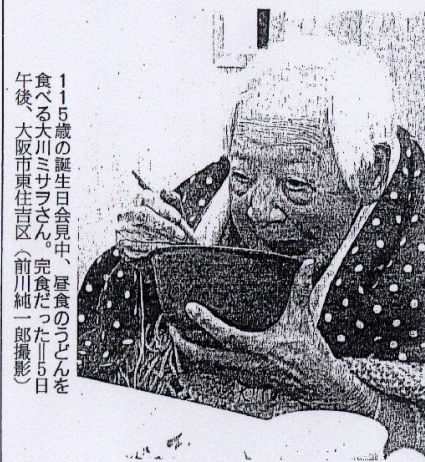 115歳の誕生日会見中、昼食のうどんを
食べる大川ミサヲさん。完食だった＝5日
午後、大阪市東住吉区（前川純一郎撮影）